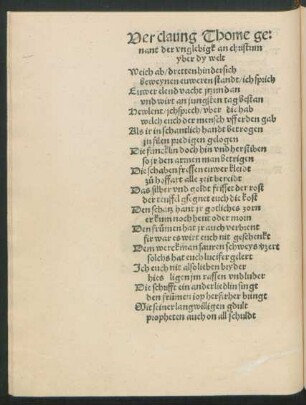 Der claung Thome ge:
nant der vnglebigk an christum
yber dy welt
Weich ab / dretten hindersich
Beweynen euweren standt / ich sprich
Euwer elend vacht jtzund an
vnd wirt an jungsten tag bestan
Hewlent / ich sprech / vber die hab
welch euch der mensch vfferden gab
Als ir in schantlich handt betrogen
jn filen predigen gelogen
Die funcklin doch hin vnd her stiben
so jr den armen man betrigen
Die schaben fressen euwer kleiot
zů hoffart alle zeit bereidt
Das silber vnd goldt frisset der rost
der teuffel gsegnet euch die kost
Den schatz hant jr gotliches zorn
er kum noch heut oder morn
Den frůmen hat jr auch verhient
fir war es wirt euch nit geschenckt
Dem werckman sauren schweys vzert
solchs hat euch lucifer gelert
Ich euch nit absoluieren bryder
ligen jm tassen vnd luder
Die schrifft ein ander liedlin singt
den frůmen iop herfurher bringt
Mit seiner langwilligen gdult
propheten auch on all schuldt